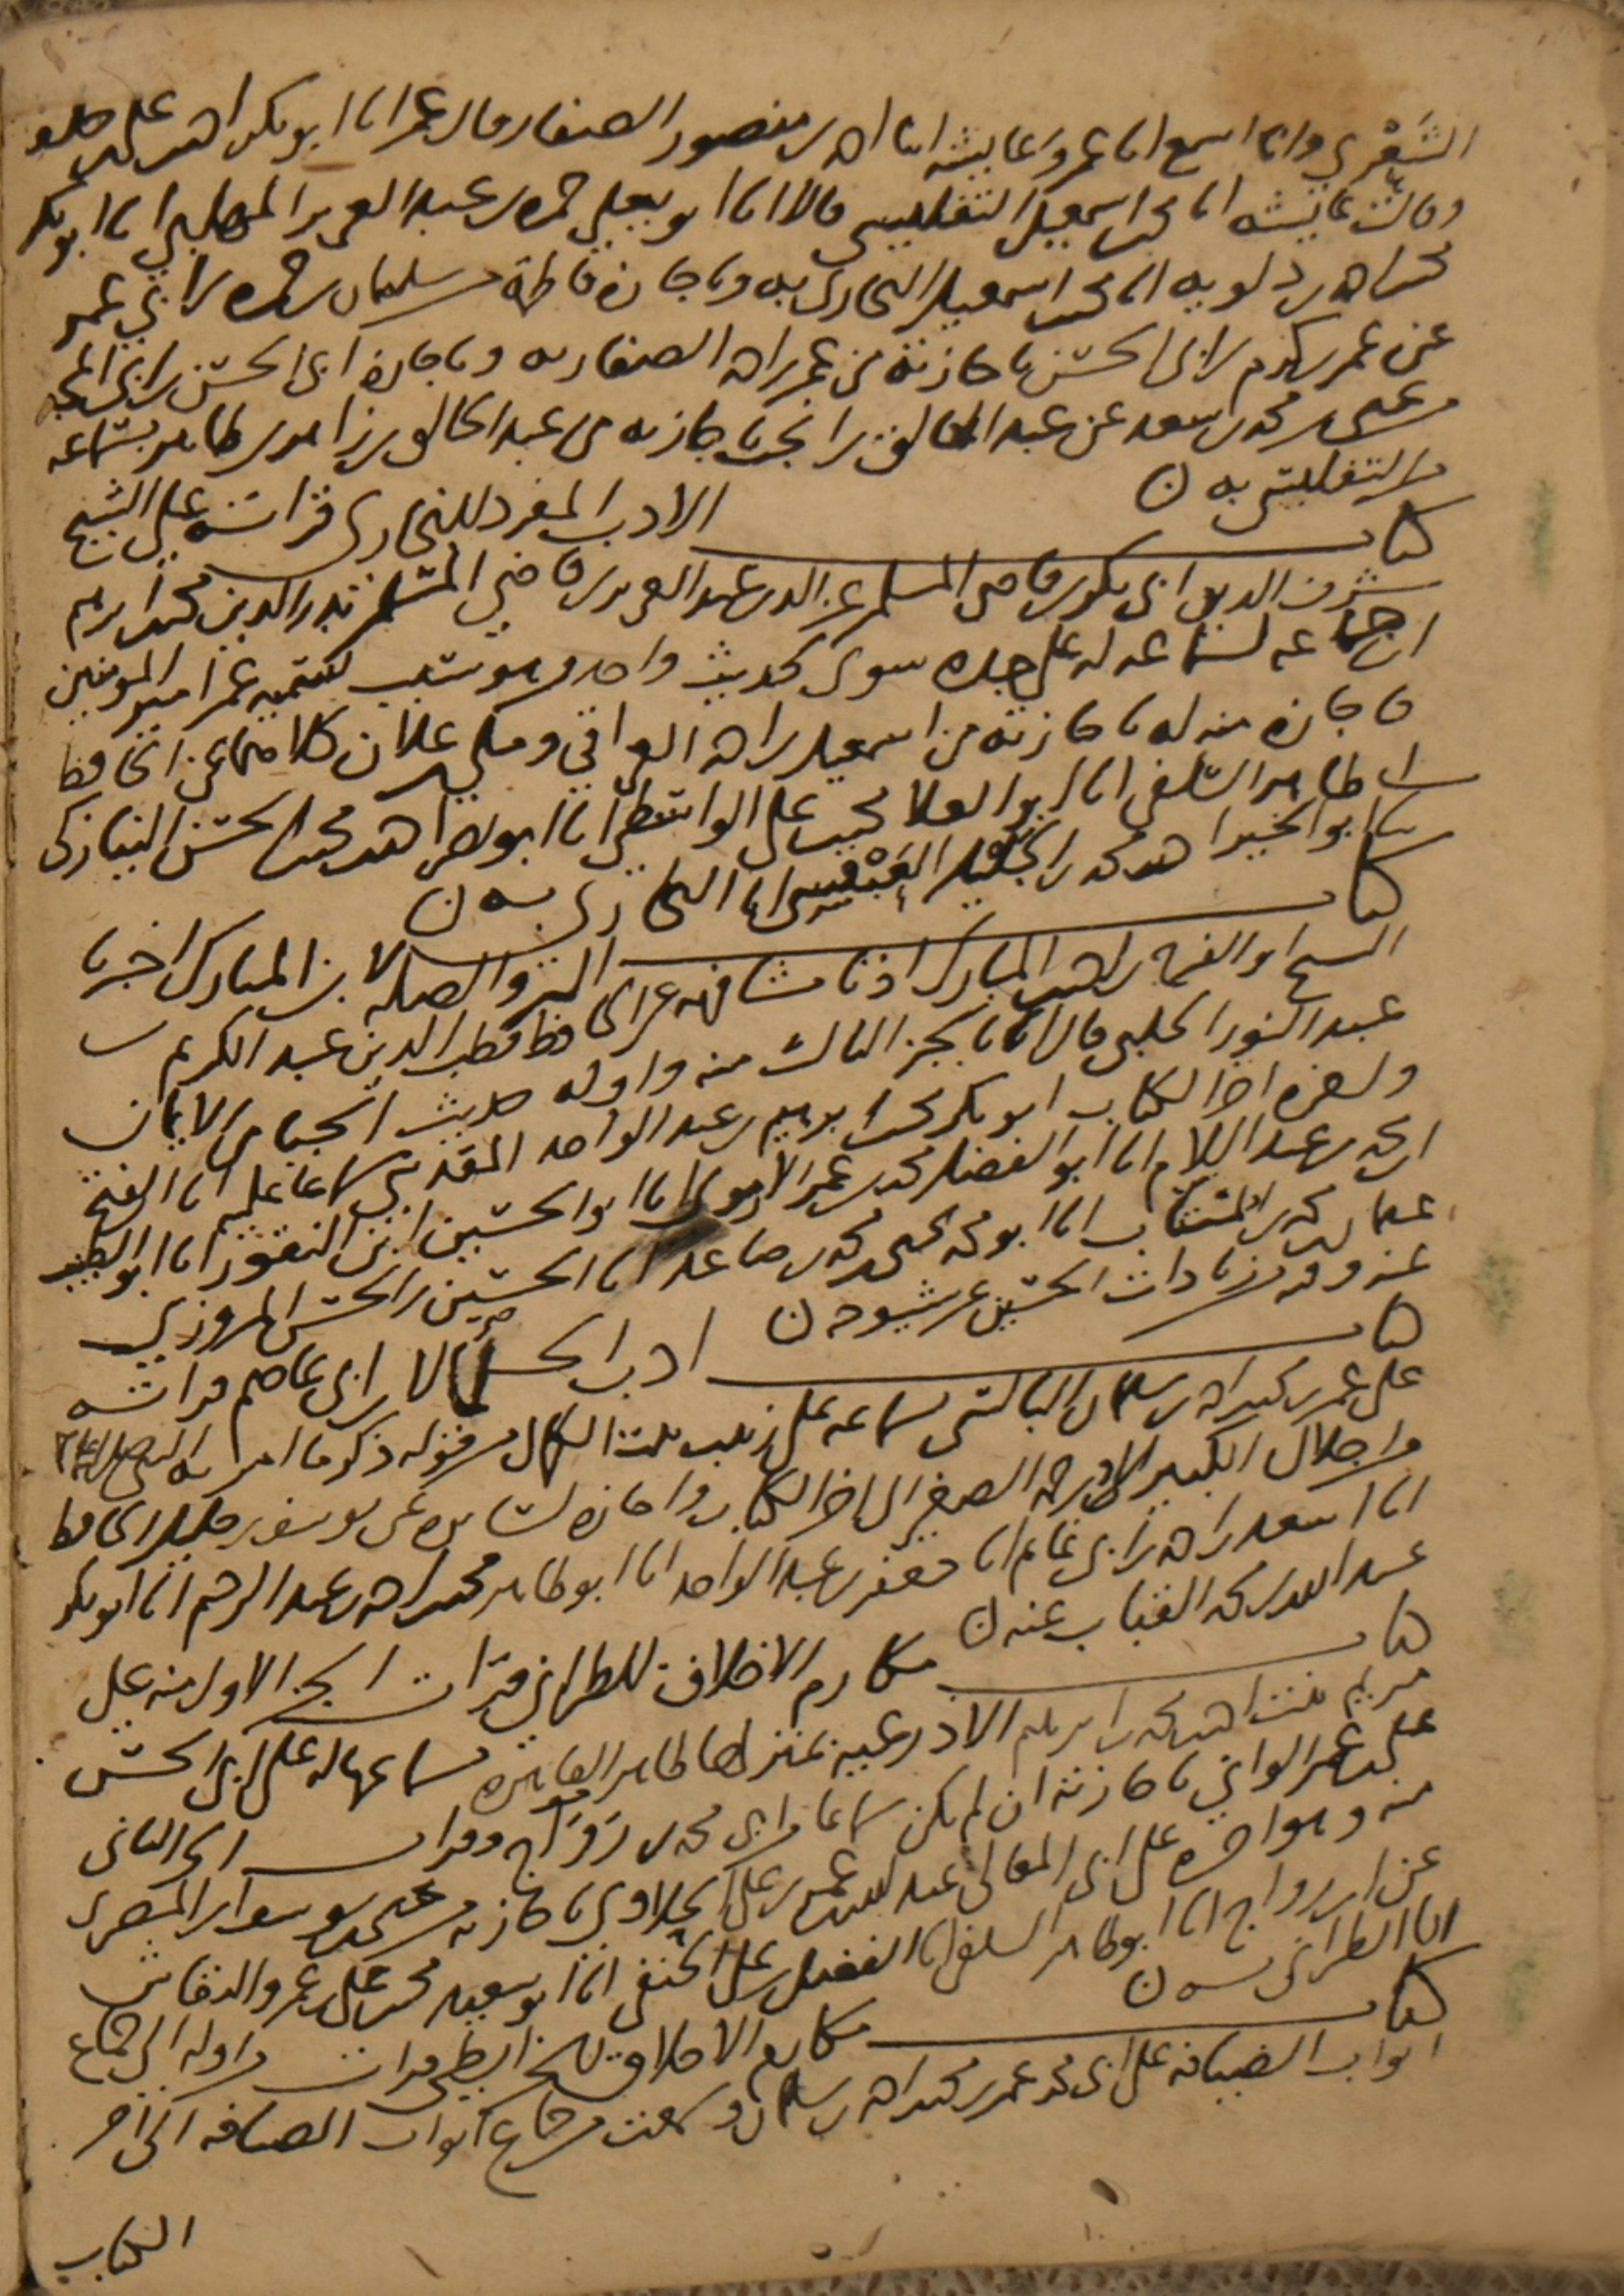 الشَعْرِي وانا اسمع انا عمر وعايشه انا احمد بن منصور الصفار قال عمر انا ابو بكر احمد بن علي بن خلف
وقالت عايشه انا محمد بن اسمعيل التفليسي قالا انا ابو يعلى حمزه بن عبد العزيز المهلبي انا ابو بكر
محمد بن احمد بن دلويه انا محمد بن اسمعيل البخاري به وباجازة فاطمة من سليمان بن حمزه بن ابي عمر
عن عمر بن كرم بن ابي الحسن باجازته من عمر بن احمد الصفار به وباجازة ابي الحسن بن ابي المجد
من يحيى بن محمد بن سعد عن عبد الخالق بن انجب باجازته من عبد الخالق بن زاهر بن طاهر بسماعه
من التفليسي به ن
كتاب الادب المفرد للبخاري قراته على الشيخ
شرف الدين ابي بكر بن قاضي المسلمين عز الدين عبد العزيز بن قاضي المسلمين بدر الدين محمد بن ابرهيم
ابن جماعه لسماعه له على جده سوى حديث واحد وهو سبب تسميه عمر امير المومنين
فاجازه منه له باجازته من اسمعيل بن احمد العراقي ومكي بن علان كلاهما عن الحافظ
ابي طاهر السلفي انا ابو العلا محمد بن علي الواسطي انا ابو نصر احمد بن محمد بن الحسن النيازكي
ثنا ابو الخير احمد بن محمد بن الجليل العَبْقَسِي انا البخاري به ن
كتاب البر والصله لابن المبارك اخبرنا
الشيخ ابو الفرج بن احمد بن المبارك اذنا مشافهه عن الحافظ قطب الدين عبد الكريم بن
عبد النور الحلبي قال انا بالجزء الثالث منه واوله حديث الحياء من الايمان
ولعله اخر الكتاب ابو بكر محمد بن ابرهيم بن عبد الواحد المقدسي سماعا عليه انا الفتح
ابن محمد بن عبد السلام انا ابو الفضل محمد بن عمر الارموي انا ابو الحسين ابن النقور انا ابو الطيب
عثمان بن محمد بن المنتاب انا ابو محمد يحيى بن محمد بن صاعد انا الحسين بن الحسن المروزي
عنه وفيه زيادات الحسين عن شيوخه ن
كتاب ادب الحكما لابن ابي عاصم قراته
على عمر بن محمد بن احمد بن سلمان البالسي بسماعه على زينب بنت الكمال من قوله ذكر ما امر به النبي صلى الله عليه وسلم
من اجلال الكبير ورحمه الصغير الى اخر الكتاب واجازه لسايره عن يوسف بن خليل الحافظ
انا اسعد بن احمد بن ابي غانم انا جعفر بن عبد الواحد انا ابو طاهر محمد بن احمد بن عبد الرحيم انا ابو بكر
عبد الله بن محمد القباب عنه ن
كتاب مكارم الاخلاق للطبراني قرات الجزء الاول منه على
مريم بنت احمد بن محمد بن ابرهيم الاذرعيه بمنزلها ظاهر القاهره بسماعها له على ابي الحسن
علي بن عمر الواني باجازته ان لم يكن سماعا من ابي محمد بن رَوَاج وقرات الجزء الثاني
منه وهو اخره على ابي المعالي عبد الله بن عمر بن علي الحلاوي باجازته من يحيى بن يوسف بن المصري
عن ابن رواج انا ابو طاهر السلفي انا الفضل بن علي الحنفي انا ابو سعيد محمد بن علي بن عمرو النقاش
انا الطبراني به ن
كتاب مكارم الاخلاق للخرايطي قرات من اوله الى جماع
ابواب الضيافه على ابي محمد عمر بن محمد بن احمد بن سلمان وسمعت من جماع ابواب الضيافه الى اخر
الكتاب